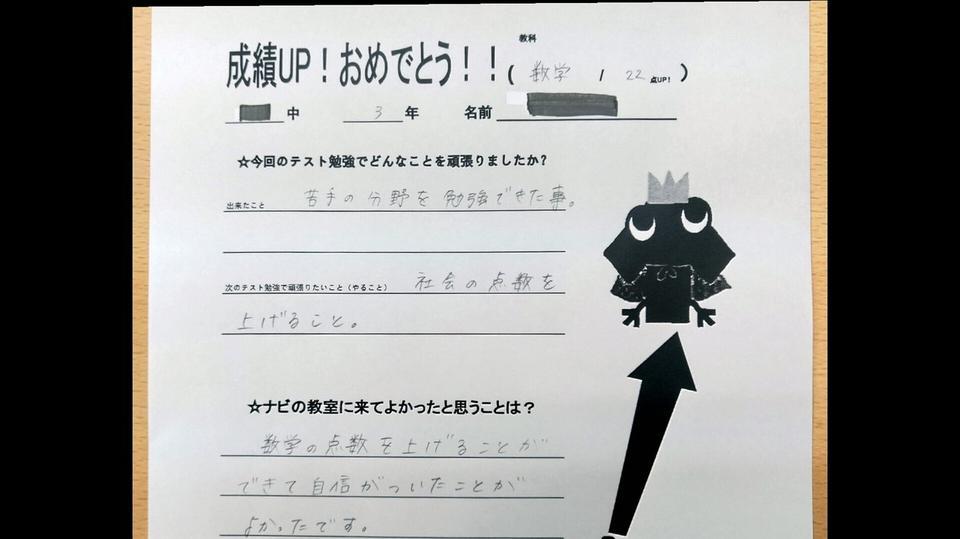 教科
成績UP！おめでとう！！（ 数学 / 22 点UP！ ）
中 3 年 名前
☆今回のテスト勉強でどんなことを頑張りましたか？
出来たこと 苦手の分野を勉強できた事。
次のテスト勉強で頑張りたいこと（やること） 社会の点数を
上げること。
☆ナビの教室に来てよかったと思うことは？
数学の点数を上げることが
できて自信がついたことが
よかったです。